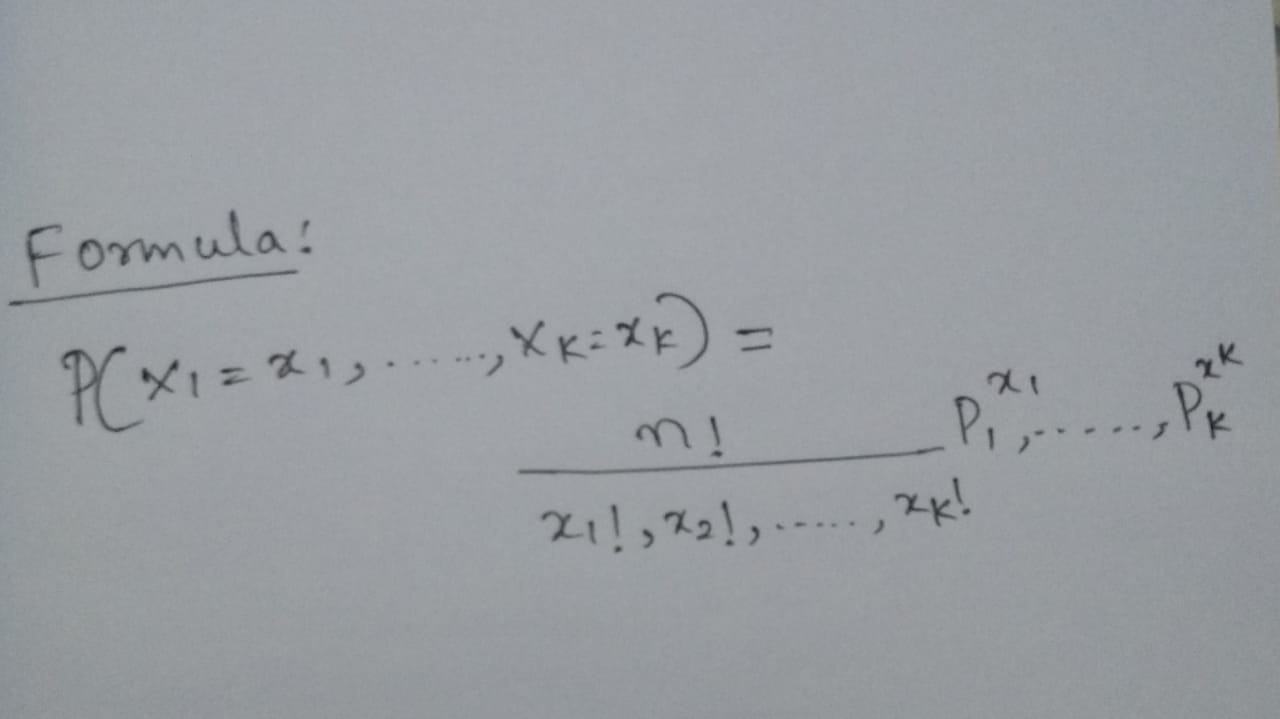 Formula:
P(X1 = x1, ......, XK = xK) =
n! / x1!, x2!, ......, xK! P1^x1, ......, PK^xK